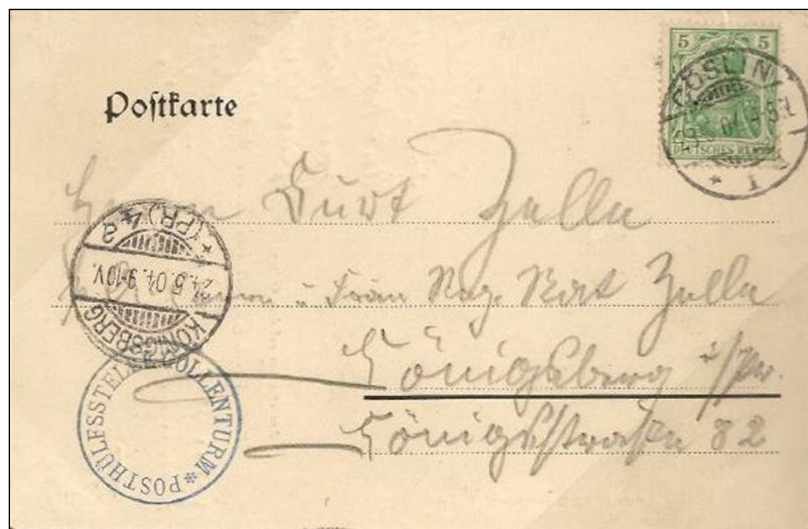 5 5
DEUTSCHES REICH
CÖSLIN
* 1
Postkarte
Herrn Kurt Zelle
u. Frau Reg. Rat Zelle
Königsberg i/Pr.
Königstraße 82
KÖNIGSBERG (PR.) 4
24.5.04. 9-10V.
POSTHÜLFSSTELLE GOLLENTURM *